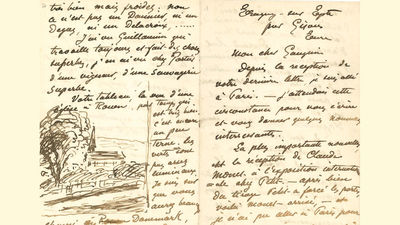 très bien mais froides: non
a n'est pas un Daumier, ni un
Degas, ni un Delacroix .....
J'ai vu Guillaumin qui
travaille toujours et fait de choses
superbes, j'en ai vu chez Portier
d'une vigueur, d'une Sauvagerie
Superbe.
Votre tableau, la vue d'une
église à Rouen, par temps gris
est très bien
c'est encore
un peu
terne, les
verts sont
pas assez
lumineux
Je suis sûr
que vous
aurez
au Danemark,
Eragny-sur-Epte
par Gisors
Eure
Mon cher Gauguin
Depuis la réception de
votre dernière lettre je suis allé
à Paris. — j'attendais cette
circonstance pour vous écrire
et vous donner quelques nouvelles
intéressantes.
La plus importante nouvelle
est la réception de Claude
Monet à l'exposition internation
ale chez Petit — après bien
du tirage Petit a forcé les portes,
voilà Monet arrivé, — et
je n'ai pu aller à Paris pour